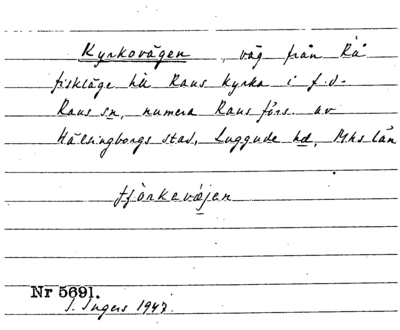 Kyrkovägen, väg från Rå
fiskläge till Raus kyrka i f.d.
Raus sn, numera Raus förs. av
Hälsingborgs stad, Luggude hd, Mhs län
tjörkevæjen
Nr 5691.
I. Ingers 1947.